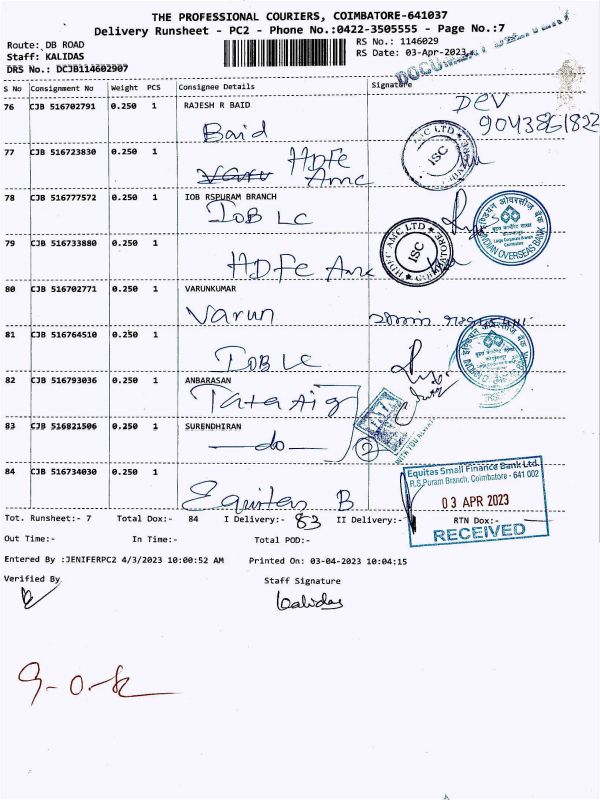 THE PROFESSIONAL COURIERS, COIMBATORE-641037
Delivery Runsheet - PC2 - Phone No.:0422-3505555 - Page No.:7
Route: DB ROAD
RS No.: 1146029
Staff: KALIDAS
RS Date: 03-Apr-2023
DRS No.: DCJB114602907
S No Consignment No Weight PCS Consignee Details Signature
76 CJB 516702791 0.250 1 RAJESH R BAID
Baid
Dev
9043861822
77 CJB 516723830 0.250 1
HDFC
Amc
HDFC AMC LTD ★ COIMBATORE ★
ISC
78 CJB 516777572 0.250 1 IOB RSPURAM BRANCH
IOB LC
INDIAN OVERSEAS BANK
79 CJB 516733880 0.250 1
HDFC Amc
HDFC AMC LTD ★ COIMBATORE ★
ISC
80 CJB 516702771 0.250 1 VARUNKUMAR
Varun
81 CJB 516764510 0.250 1
IOB LC
82 CJB 516793036 0.250 1 ANBARASAN
Tata Aig
83 CJB 516821506 0.250 1 SURENDHIRAN
do
2
84 CJB 516734030 0.250 1
Equitas B
Equitas Small Finance Bank Ltd.
R.S.Puram Branch, Coimbatore - 641 002
03 APR 2023
RECEIVED
Tot. Runsheet:- 7 Total Dox:- 84 I Delivery:- 83 II Delivery:- RTN Dox:-
Out Time:- In Time:- Total POD:-
Entered By :JENIFERPC2 4/3/2023 10:00:52 AM Printed On: 03-04-2023 10:04:15
Verified By Staff Signature
Kalidas
9-0-k